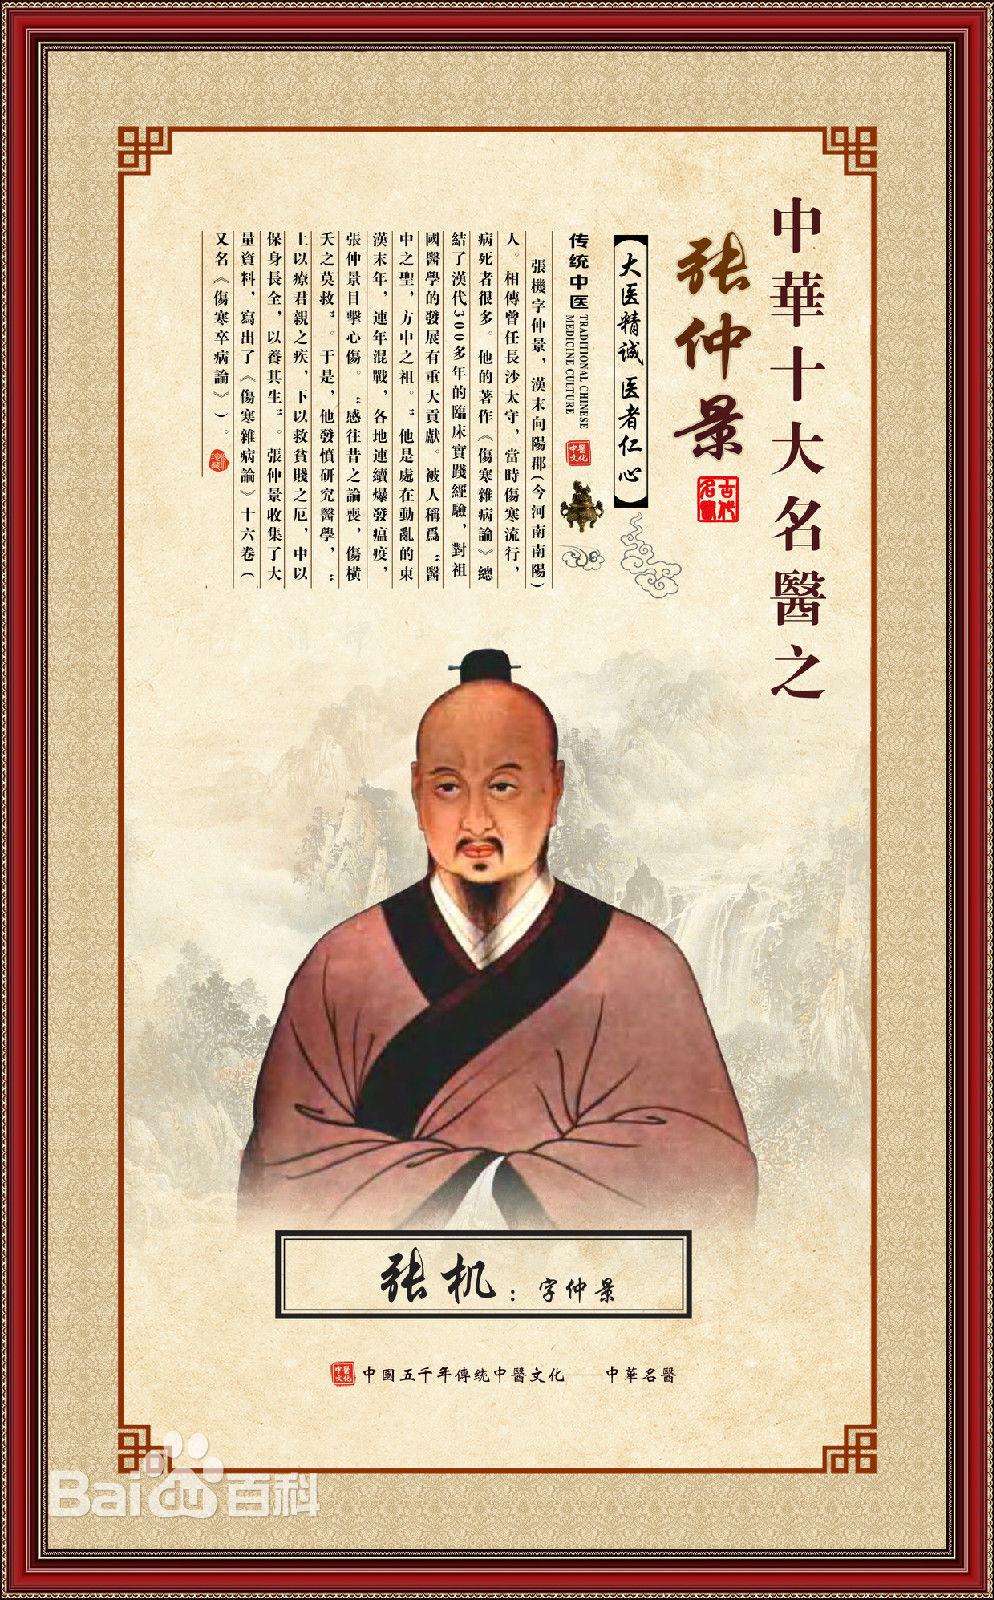 中華十大名醫之
张仲景
古代名醫
大医精诚 医者仁心
传统中医
TRADITIONAL CHINESE
MEDICINE CULTURE
中醫文化
張機字仲景，漢末向陽郡(今河南南陽)
人。相傳曾任長沙太守，當時傷寒流行，
病死者很多。他的著作《傷寒雜病論》總
結了漢代300多年的臨床實踐經驗，對祖
國醫學的發展有重大貢獻。被人稱爲“醫
中之聖，方中之祖。”他是處在動亂的東
漢末年，連年混戰，各地連續爆發瘟疫，
張仲景目擊心傷。“感往昔之淪喪，傷橫
夭之莫救”。于是，他發憤研究醫學，“
上以療君親之疾，下以救貧賤之厄，中以
保身長全，以養其生”。張仲景收集了大
量資料，寫出了《傷寒雜病論》十六卷(
又名《傷寒卒病論》)。
张机：字仲景
中醫文化
中國五千年傳统中醫文化——中華名醫
Bai百科